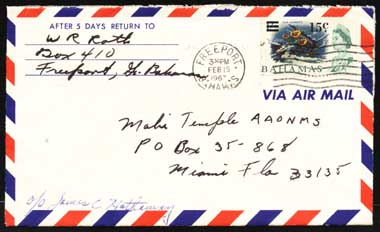 AFTER 5 DAYS RETURN TO
W R Roth
Box 410
Freeport, Gr. Bahama
FREEPORT
3-PM
FEB 15
BAHAMAS
15c
BAHAMAS
VIA AIR MAIL
Mahi Temple AAONMS
P O Box 35-868
Miami Fla 33135
c/o James C Hathaway